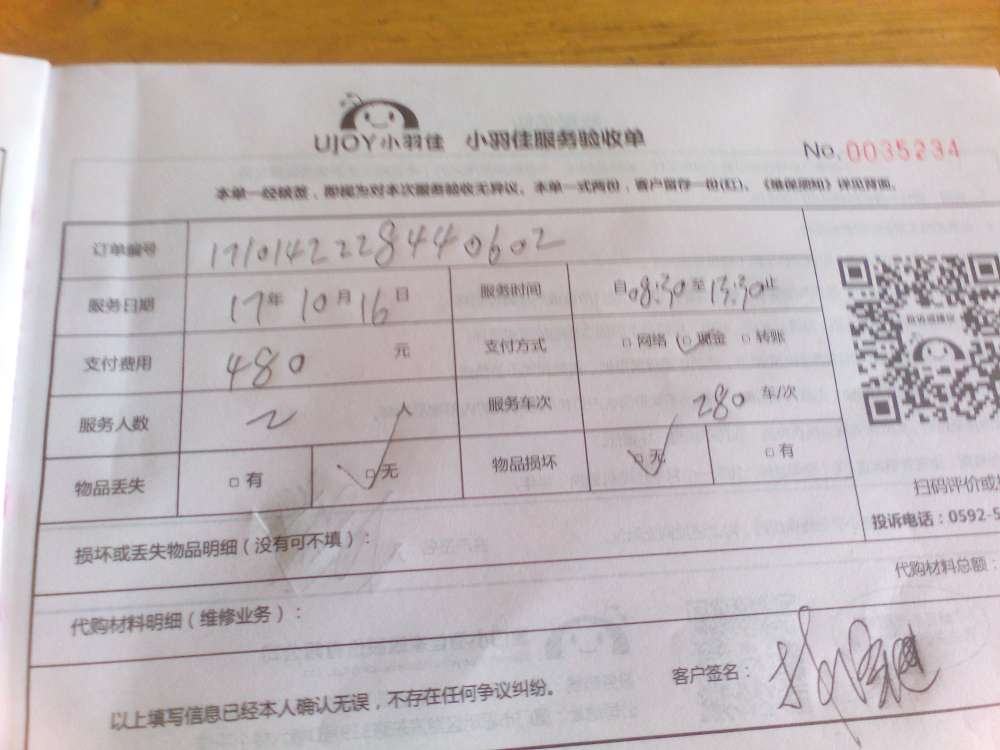 UJOY小羽佳 小羽佳服务验收单 No.0035234
本单一经核签,即视为对本次服务验收无异议。本单一式两份,客户留存一份(红)。《维保须知》详见背面。
订单编号 1710142228440602
服务日期 17年10月16日 服务时间 自08:30至13:30止
支付费用 480 元 支付方式 □网络 □现金 □转账
服务人数 2 人 服务车次 280 车/次
物品丢失 □有 □无 物品损坏 □无 □有
扫码评价或
损坏或丢失物品明细(没有可不填): 投诉电话:0592-5
代购材料总额:
代购材料明细(维修业务):
客户签名:
以上填写信息已经本人确认无误,不存在任何争议纠纷。